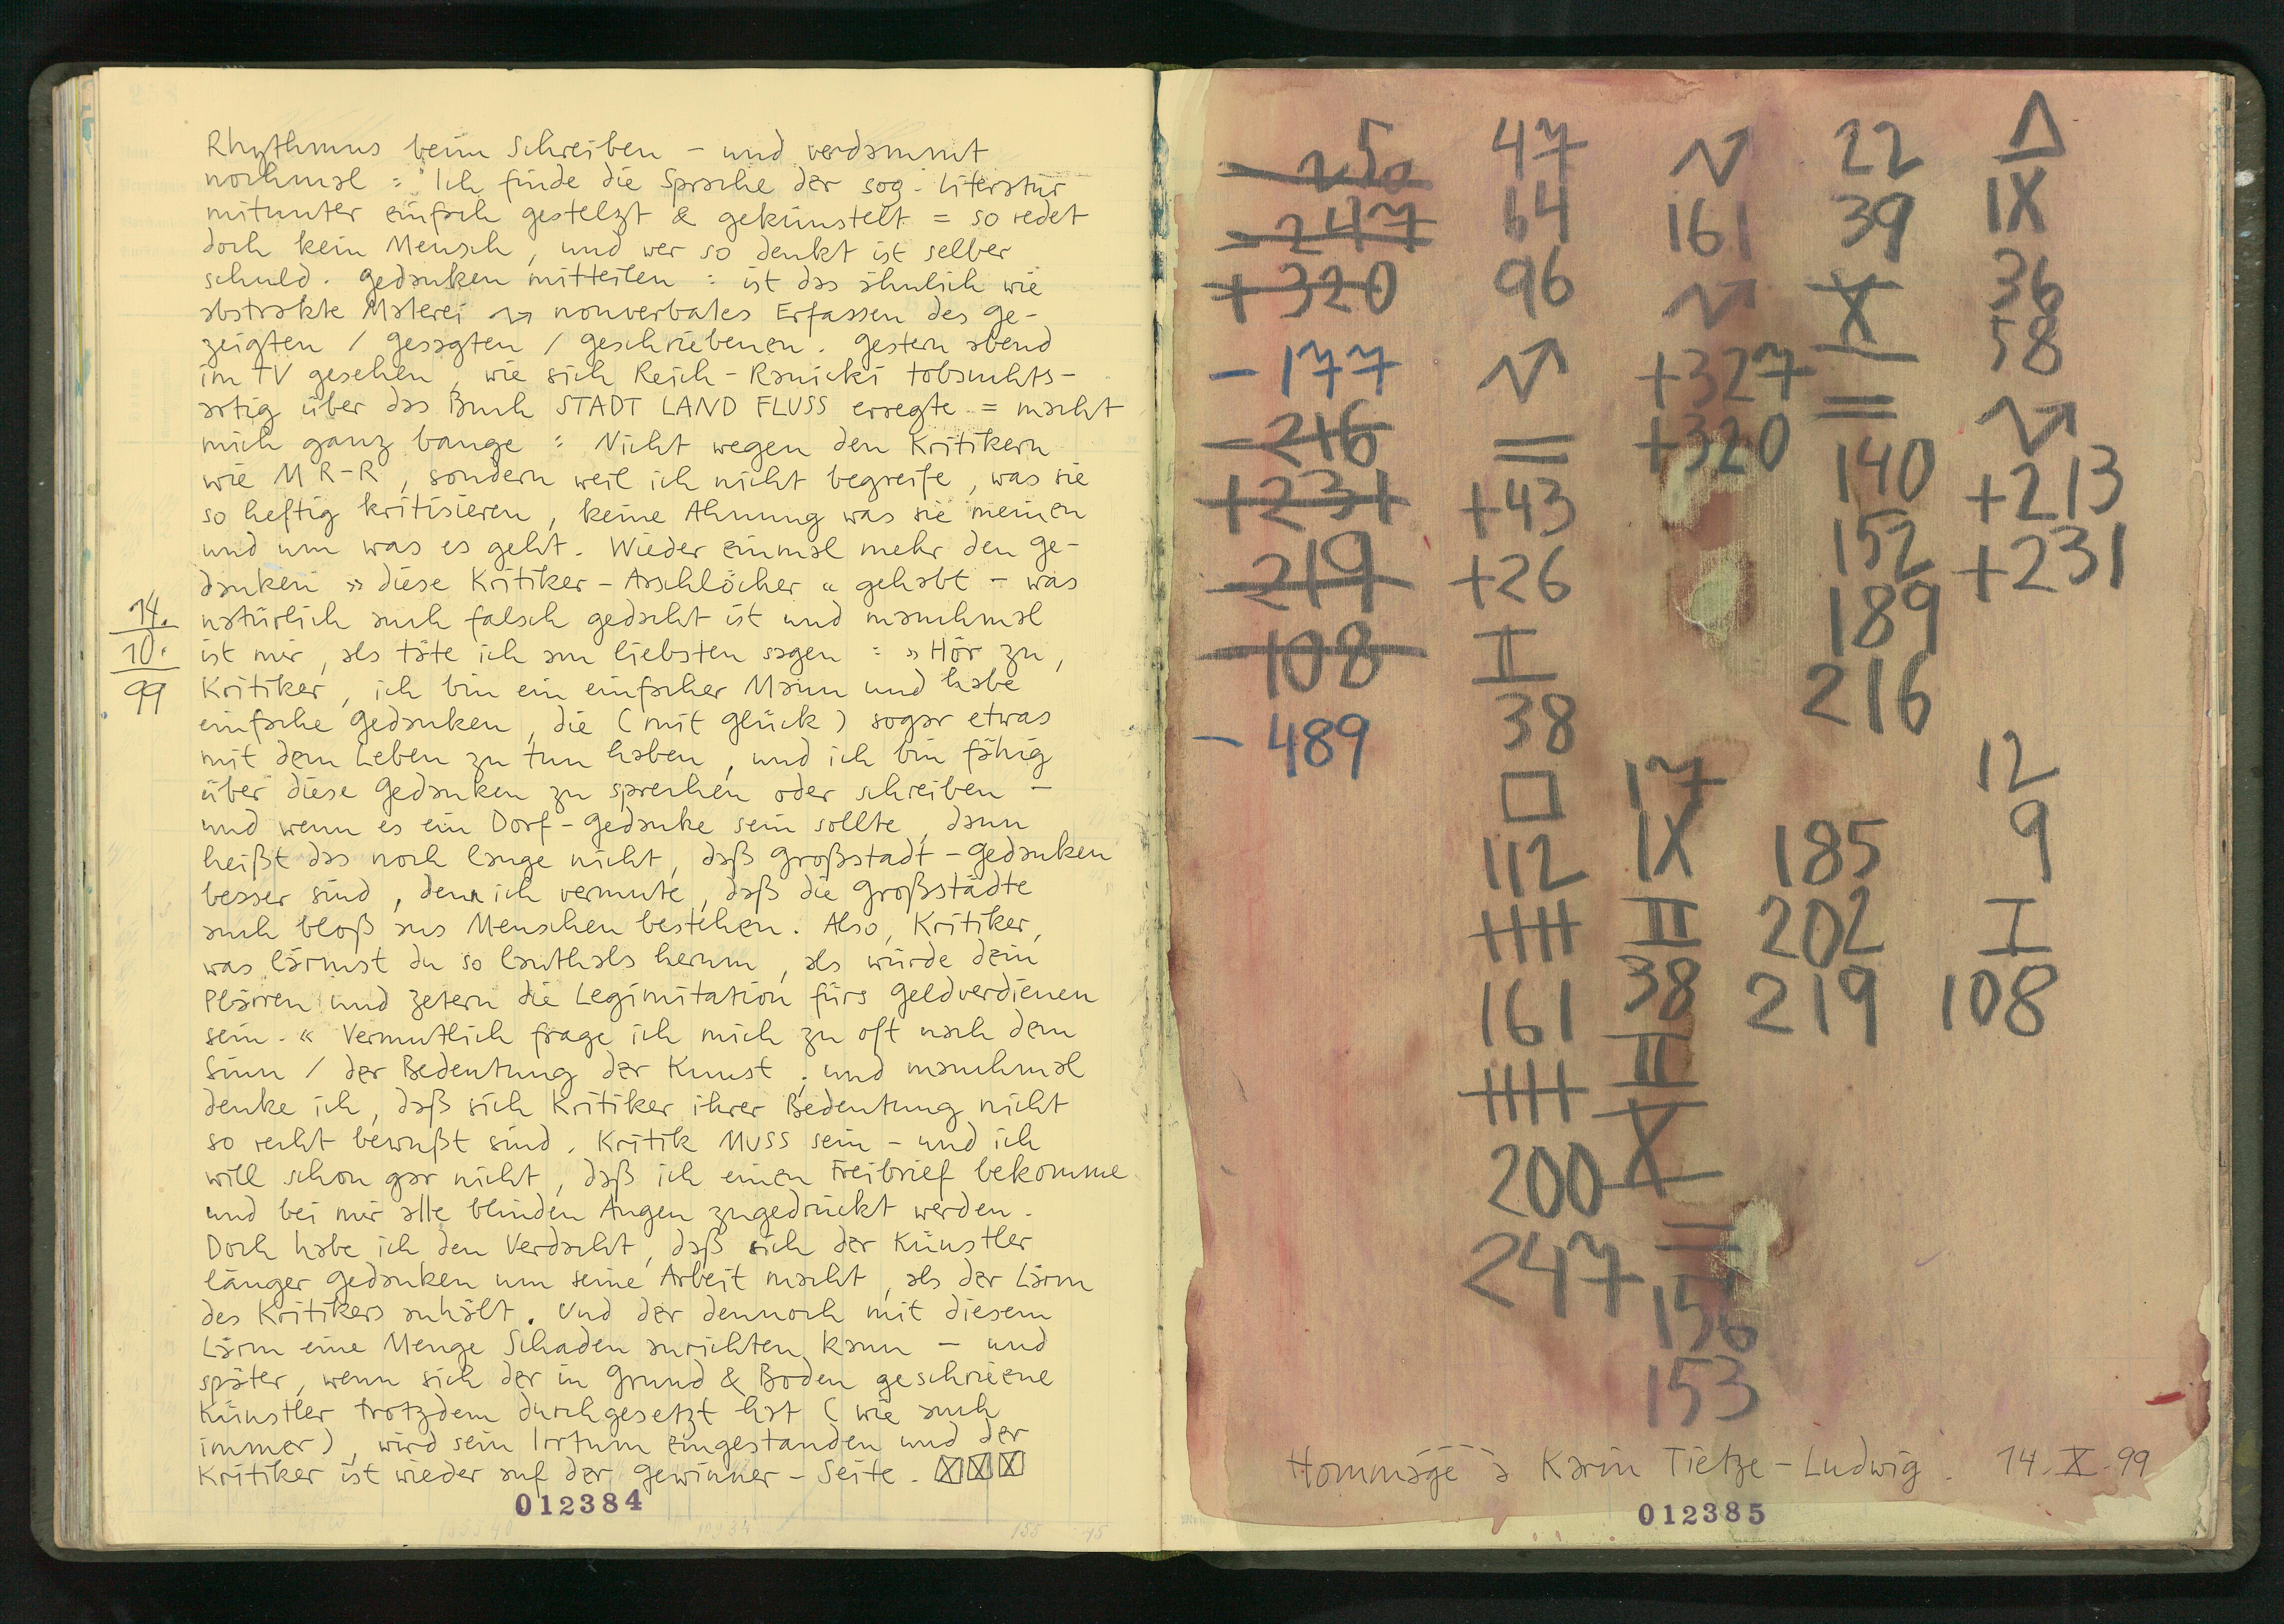 Rhythmus beim Schreiben – und verdammt
nochmal : Ich finde die Sprache der sog. Literatur
mitunter einfach gestelzt & gekünstelt = so redet
doch kein Mensch, und wer so denkt ist selber
schuld. Gedanken mitteilen : ist das ähnlich wie
abstrakte Malerei nonverbales Erfassen des ge-
zeigten / gesagten / geschriebenen. Gestern abend
im TV gesehen, wie sich Reich-Ranicki tobsuchts-
artig über das Buch STADT LAND FLUSS erregte = macht
mich ganz bange : Nicht wegen den Kritikern
wie M R-R, sondern weil ich nicht begreife, was sie
so heftig kritisieren, keine Ahnung was sie meinen
und um was es geht. Wieder einmal mehr den Ge-
danken »diese Kritiker-Arschlöcher« gehabt – was
natürlich auch falsch gedacht ist und manchmal
ist mir, als täte ich am liebsten sagen : »Hör zu,
Kritiker, ich bin ein einfacher Mann und habe
einfache Gedanken, die (mit Glück) sogar etwas
mit dem Leben zu tun haben, und ich bin fähig
über diese Gedanken zu sprechen oder schreiben –
und wenn es ein Dorf-Gedanke sein sollte, dann
heißt das noch lange nicht, daß Großstadt-Gedanken
besser sind, denn ich vermute, daß die Großstädte
auch bloß aus Menschen bestehen. Also, Kritiker,
was lärmst du so lauthals herum, als würde dein
Plärren und Zetern die Legimitation fürs Geldverdienen
sein.« Vermutlich frage ich mich zu oft nach dem
Sinn / der Bedeutung der Kunst ; und manchmal
denke ich, daß sich Kritiker ihrer Bedeutung nicht
so recht bewußt sind. Kritik MUSS sein – und ich
will schon gar nicht, daß ich einen Freibrief bekomme
und bei mir alle blinden Augen zugedrückt werden.
Doch habe ich den Verdacht, daß sich der Künstler
länger Gedanken um seine Arbeit macht, als der Lärm
des Kritikers anhält. Und der dennoch mit diesem
Lärm eine Menge Schaden anrichten kann – und
später, wenn sich der in Grund & Boden geschriene
Künstler trotzdem durchgesetzt hat (wie auch
immer), wird sein Irrtum eingestanden und der
Kritiker ist wieder auf der Gewinner-Seite.
14.
10.
99
012384
5
- 250
- 247
+ 320
- 177
- 216
+ 231
- 219
- 108
- 489
47
64
96
=
+43
+26
II
38
112
161
200
247
161
+327
+320
17
IX
II
38
II
X
=
156
153
22
39
X
=
140
152
189
216
185
202
219
IX
36
58
+213
+231
12
9
I
108
Hommage à Karin Tietze-Ludwig. 14. X. 99
012385